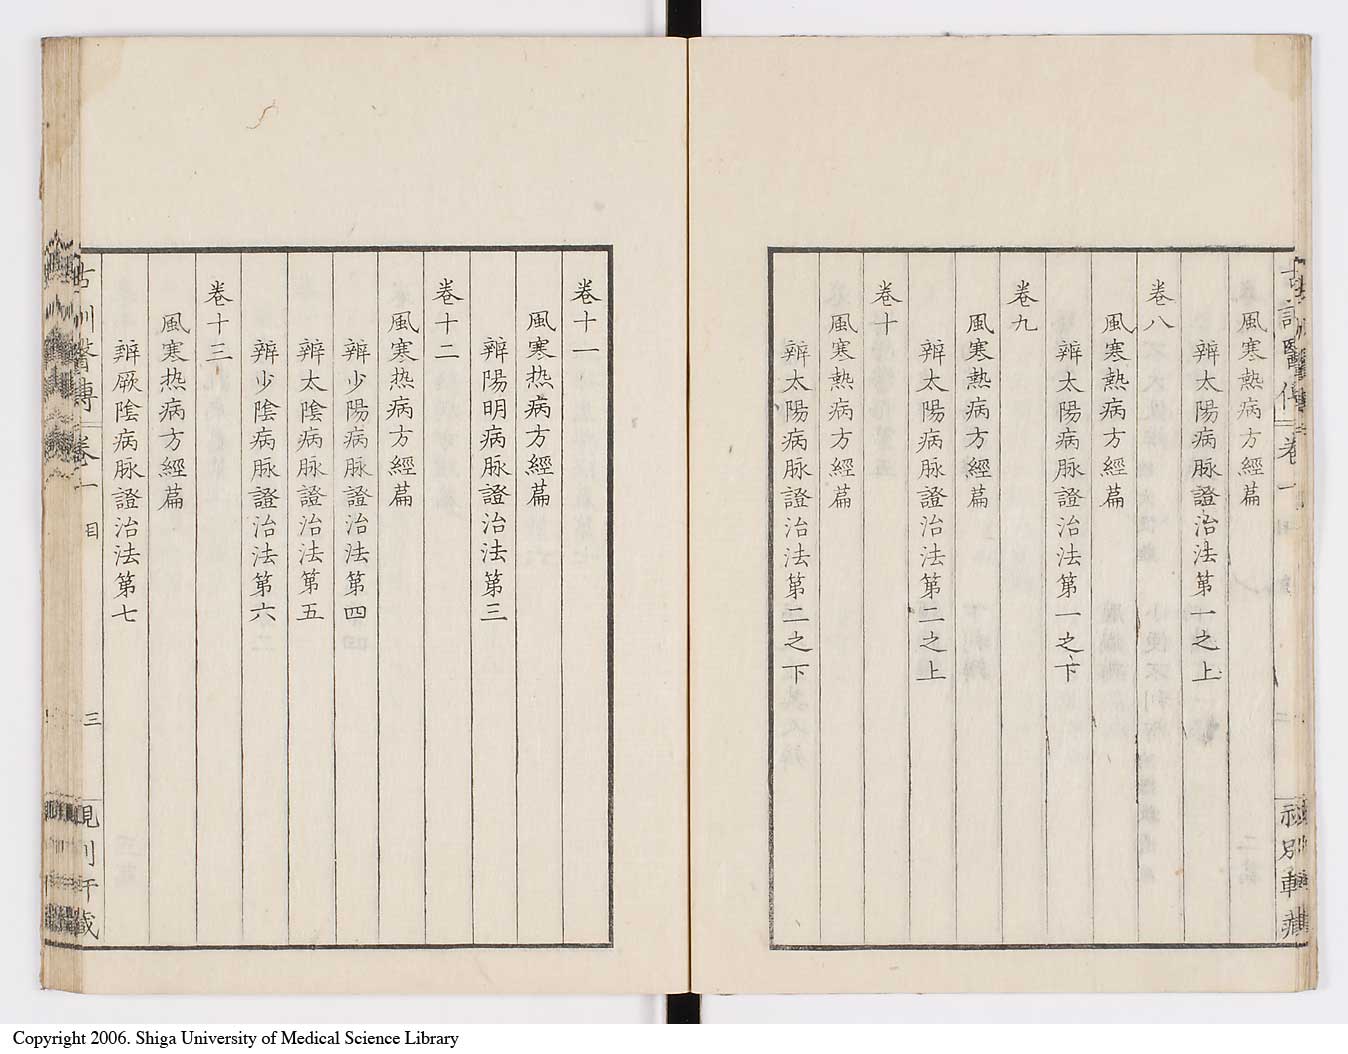 風寒熱病方經篇
辨太陽病脉證治法第一之上
卷八
風寒熱病方經篇
辨太陽病脉證治法第一之下
卷九
風寒熱病方經篇
辨太陽病脉證治法第二之上
卷十
風寒熱病方經篇
辨太陽病脉證治法第二之下
卷十一
風寒热病方經篇
辨陽明病脉證治法第三
卷十二
風寒热病方經篇
辨少陽病脉證治法第四
辨太陰病脉證治法第五
辨少陰病脉證治法第六
卷十三
風寒热病方經篇
辨厥陰病脉證治法第七
古訓醫傳 卷一 目 三
Copyright 2006. Shiga University of Medical Science Library